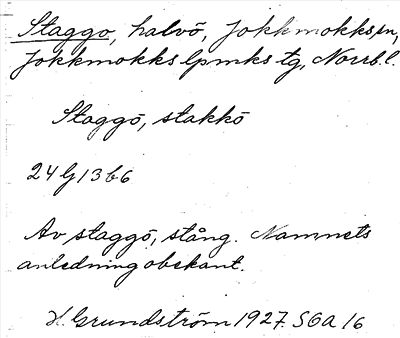 Staggo, halvö, Jokkmokks sn,
Jokkmokks lpmks tg, Norrb. l.
Staggō, stakkō
24 G 13 b 6
Av staggō, stång. Namnets
anledning obekant.
H. Grundström 1927. SOA 16